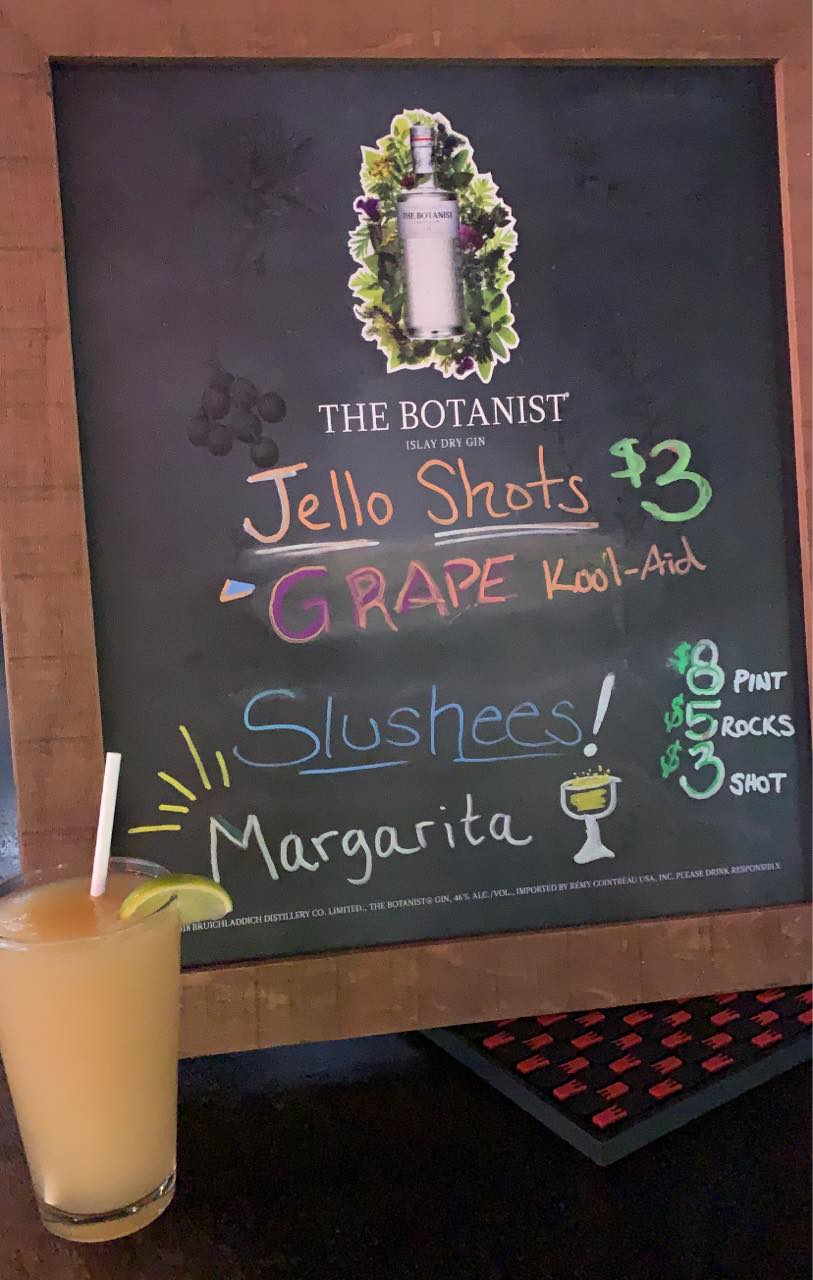 THE BOTANIST
THE BOTANIST®
ISLAY DRY GIN
Jello Shots $3
- GRAPE Kool-Aid
Slushees!
$8 PINT
$5 ROCKS
$3 SHOT
Margarita
18 BRUICHLADDICH DISTILLERY CO. LIMITED., THE BOTANIST® GIN, 46% ALC./VOL., IMPORTED BY RÉMY COINTREAU USA, INC. PLEASE DRINK RESPONSIBLY.